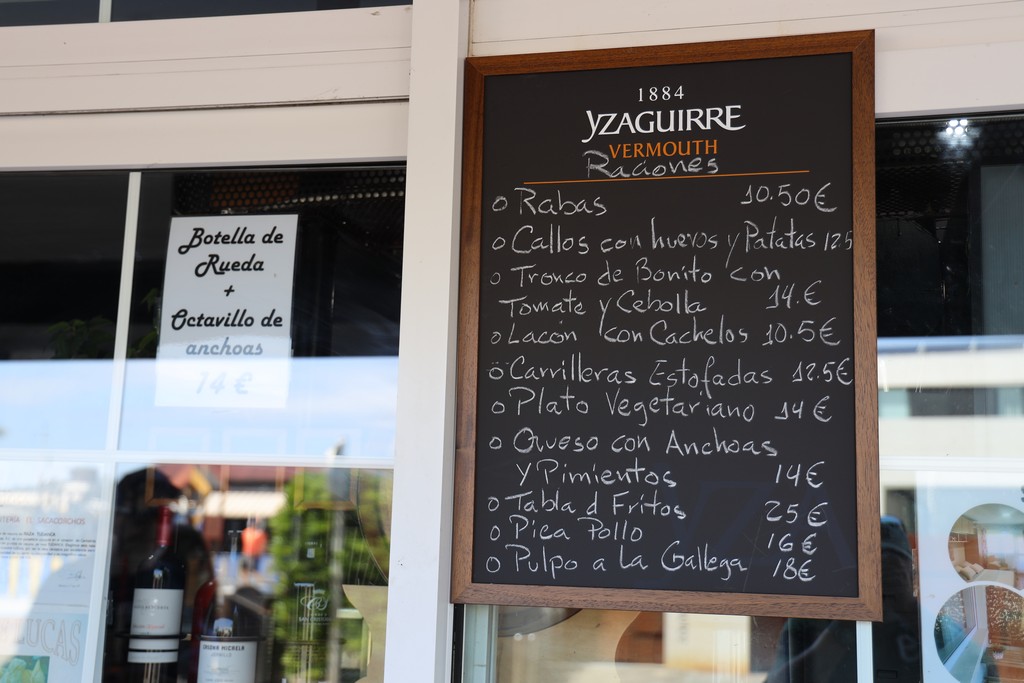 Botella de
Rueda
+
Octavillo de
anchoas
14 €
1884
YZAGUIRRE
VERMOUTH
Raciones
o Rabas 10.50€
o Callos con huevos y Patatas 12.5
o Tronco de Bonito con
Tomate y Cebolla 14.€
o Lacón con Cachelos 10.5€
o Carrilleras Estofadas 12.5€
o Plato Vegetariano 14€
o Queso con Anchoas
y Pimientos 14€
o Tabla d Fritos 25€
o Pica Pollo 16€
o Pulpo a La Gallega 18€
EL SACACORCHOS
LUCAS